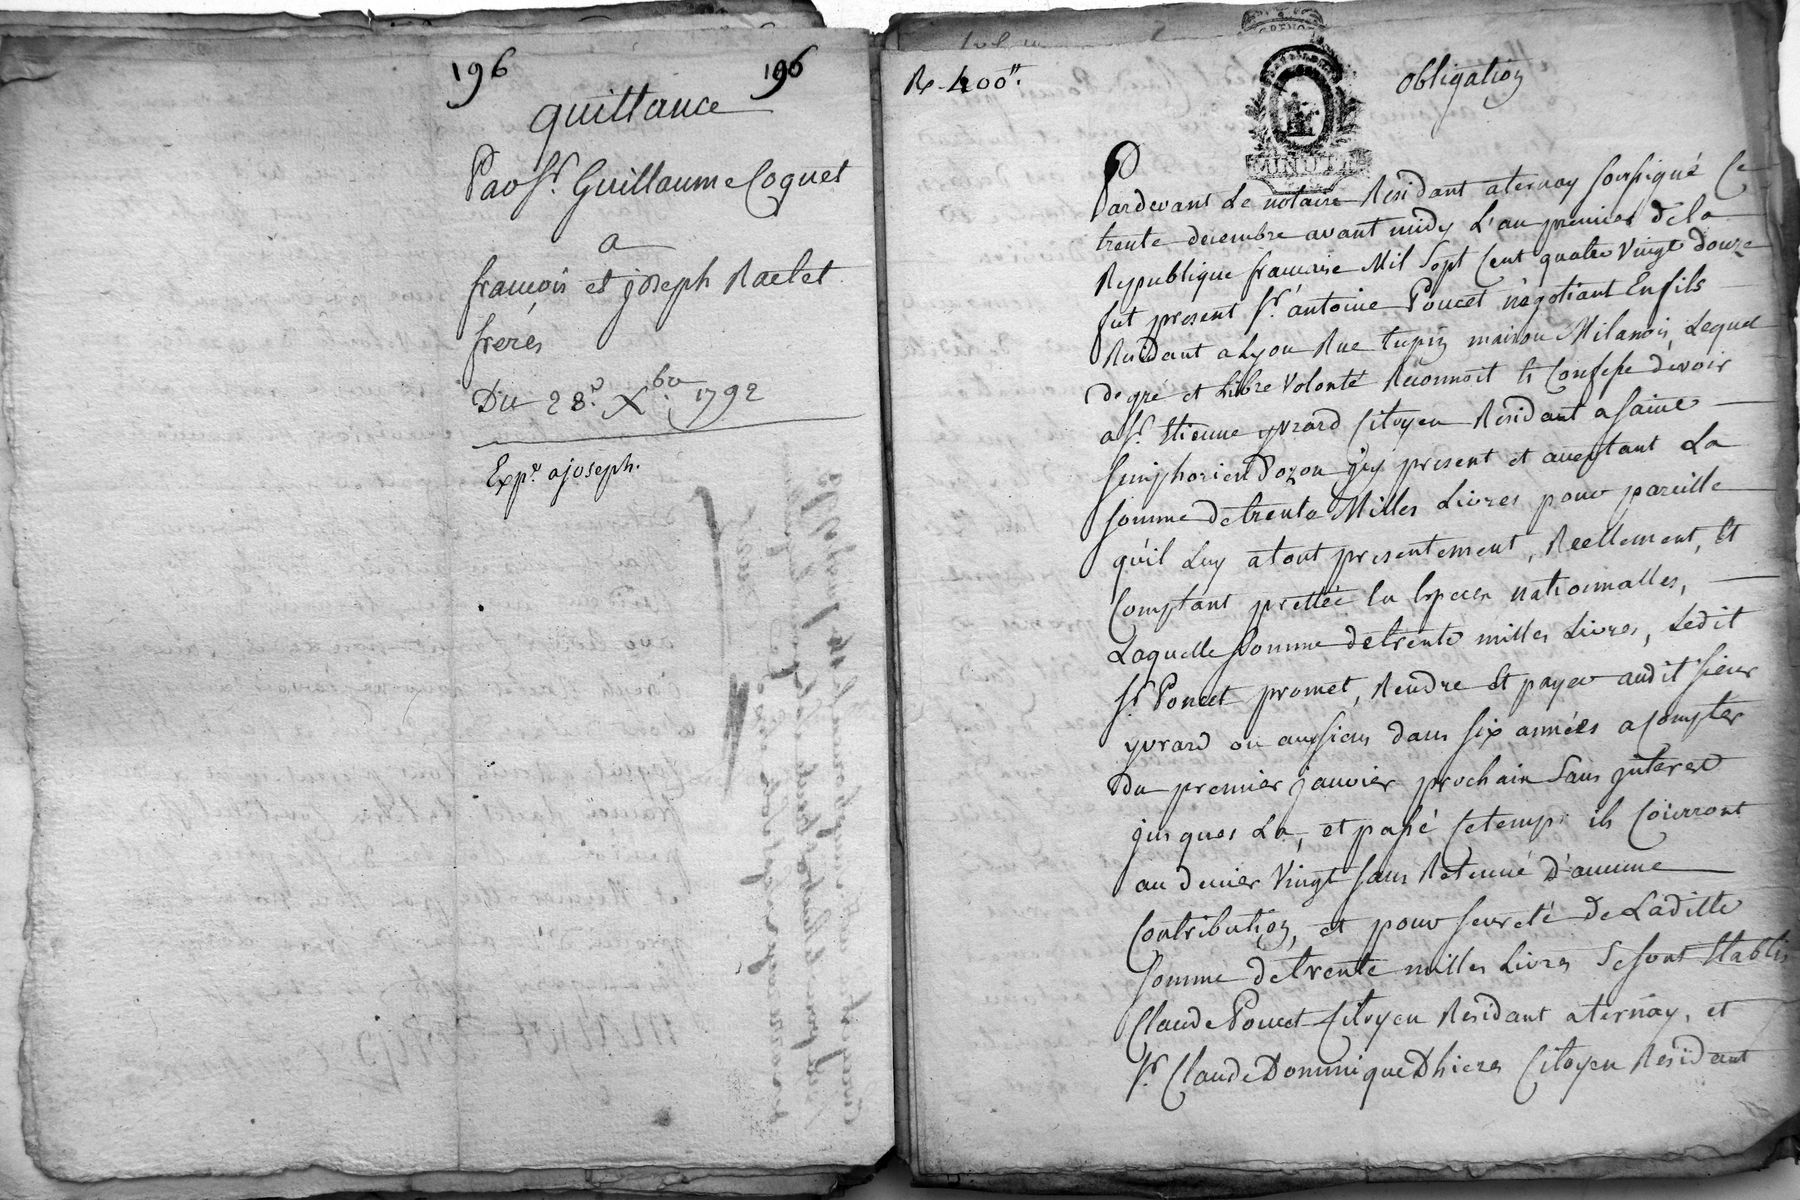 196 196
quittance
Par Sr. Guillaume Coquet
a
françois et joseph Raclet
frerés
Du 28.e Xbre. 1792
Expé. a joseph.
R. 400".
obligation
MINUTE
Pardevant Le notaire Residant aternay soussigné Ce
trente decembre avant midy L'an premier de la
Republique francoise Mil Sept Cent quatre Vingt douze
fut present Sr. antoine Poncet négotiant En fils
Residant a Lyon Rue tupin maison Milanois, Lequel
de gré et Libre Volonté Reconnoit Et Confesse devoir
a Sr. Etienne yvrard Citoyen Résidant a saint
simphorien Dozon icy present et aceptant La
somme de trente Milles Livres pour pareille
qu'il Luy a tout presentement, Réellement, Et
Comptant prettée En Especes nationnalles,
Laquelle somme de trente milles Livres, Ledit
Sr. Poncet promet, Rendre Et payer audit sieur
yvrard ou aux siens dans six années a Compter
Du premier janvier prochain Sans jnterest
jusques La, et passé Ce temps ils Courront
au denier Vingt sans Retenué d'aucune
Contribution, et pour seureté de Laditte
somme de trente milles Livres Se sont Etablis
Claude Poncet Citoyen Residant aternay, et
Sr. Claude Dominique Dhieres Citoyen Résidant